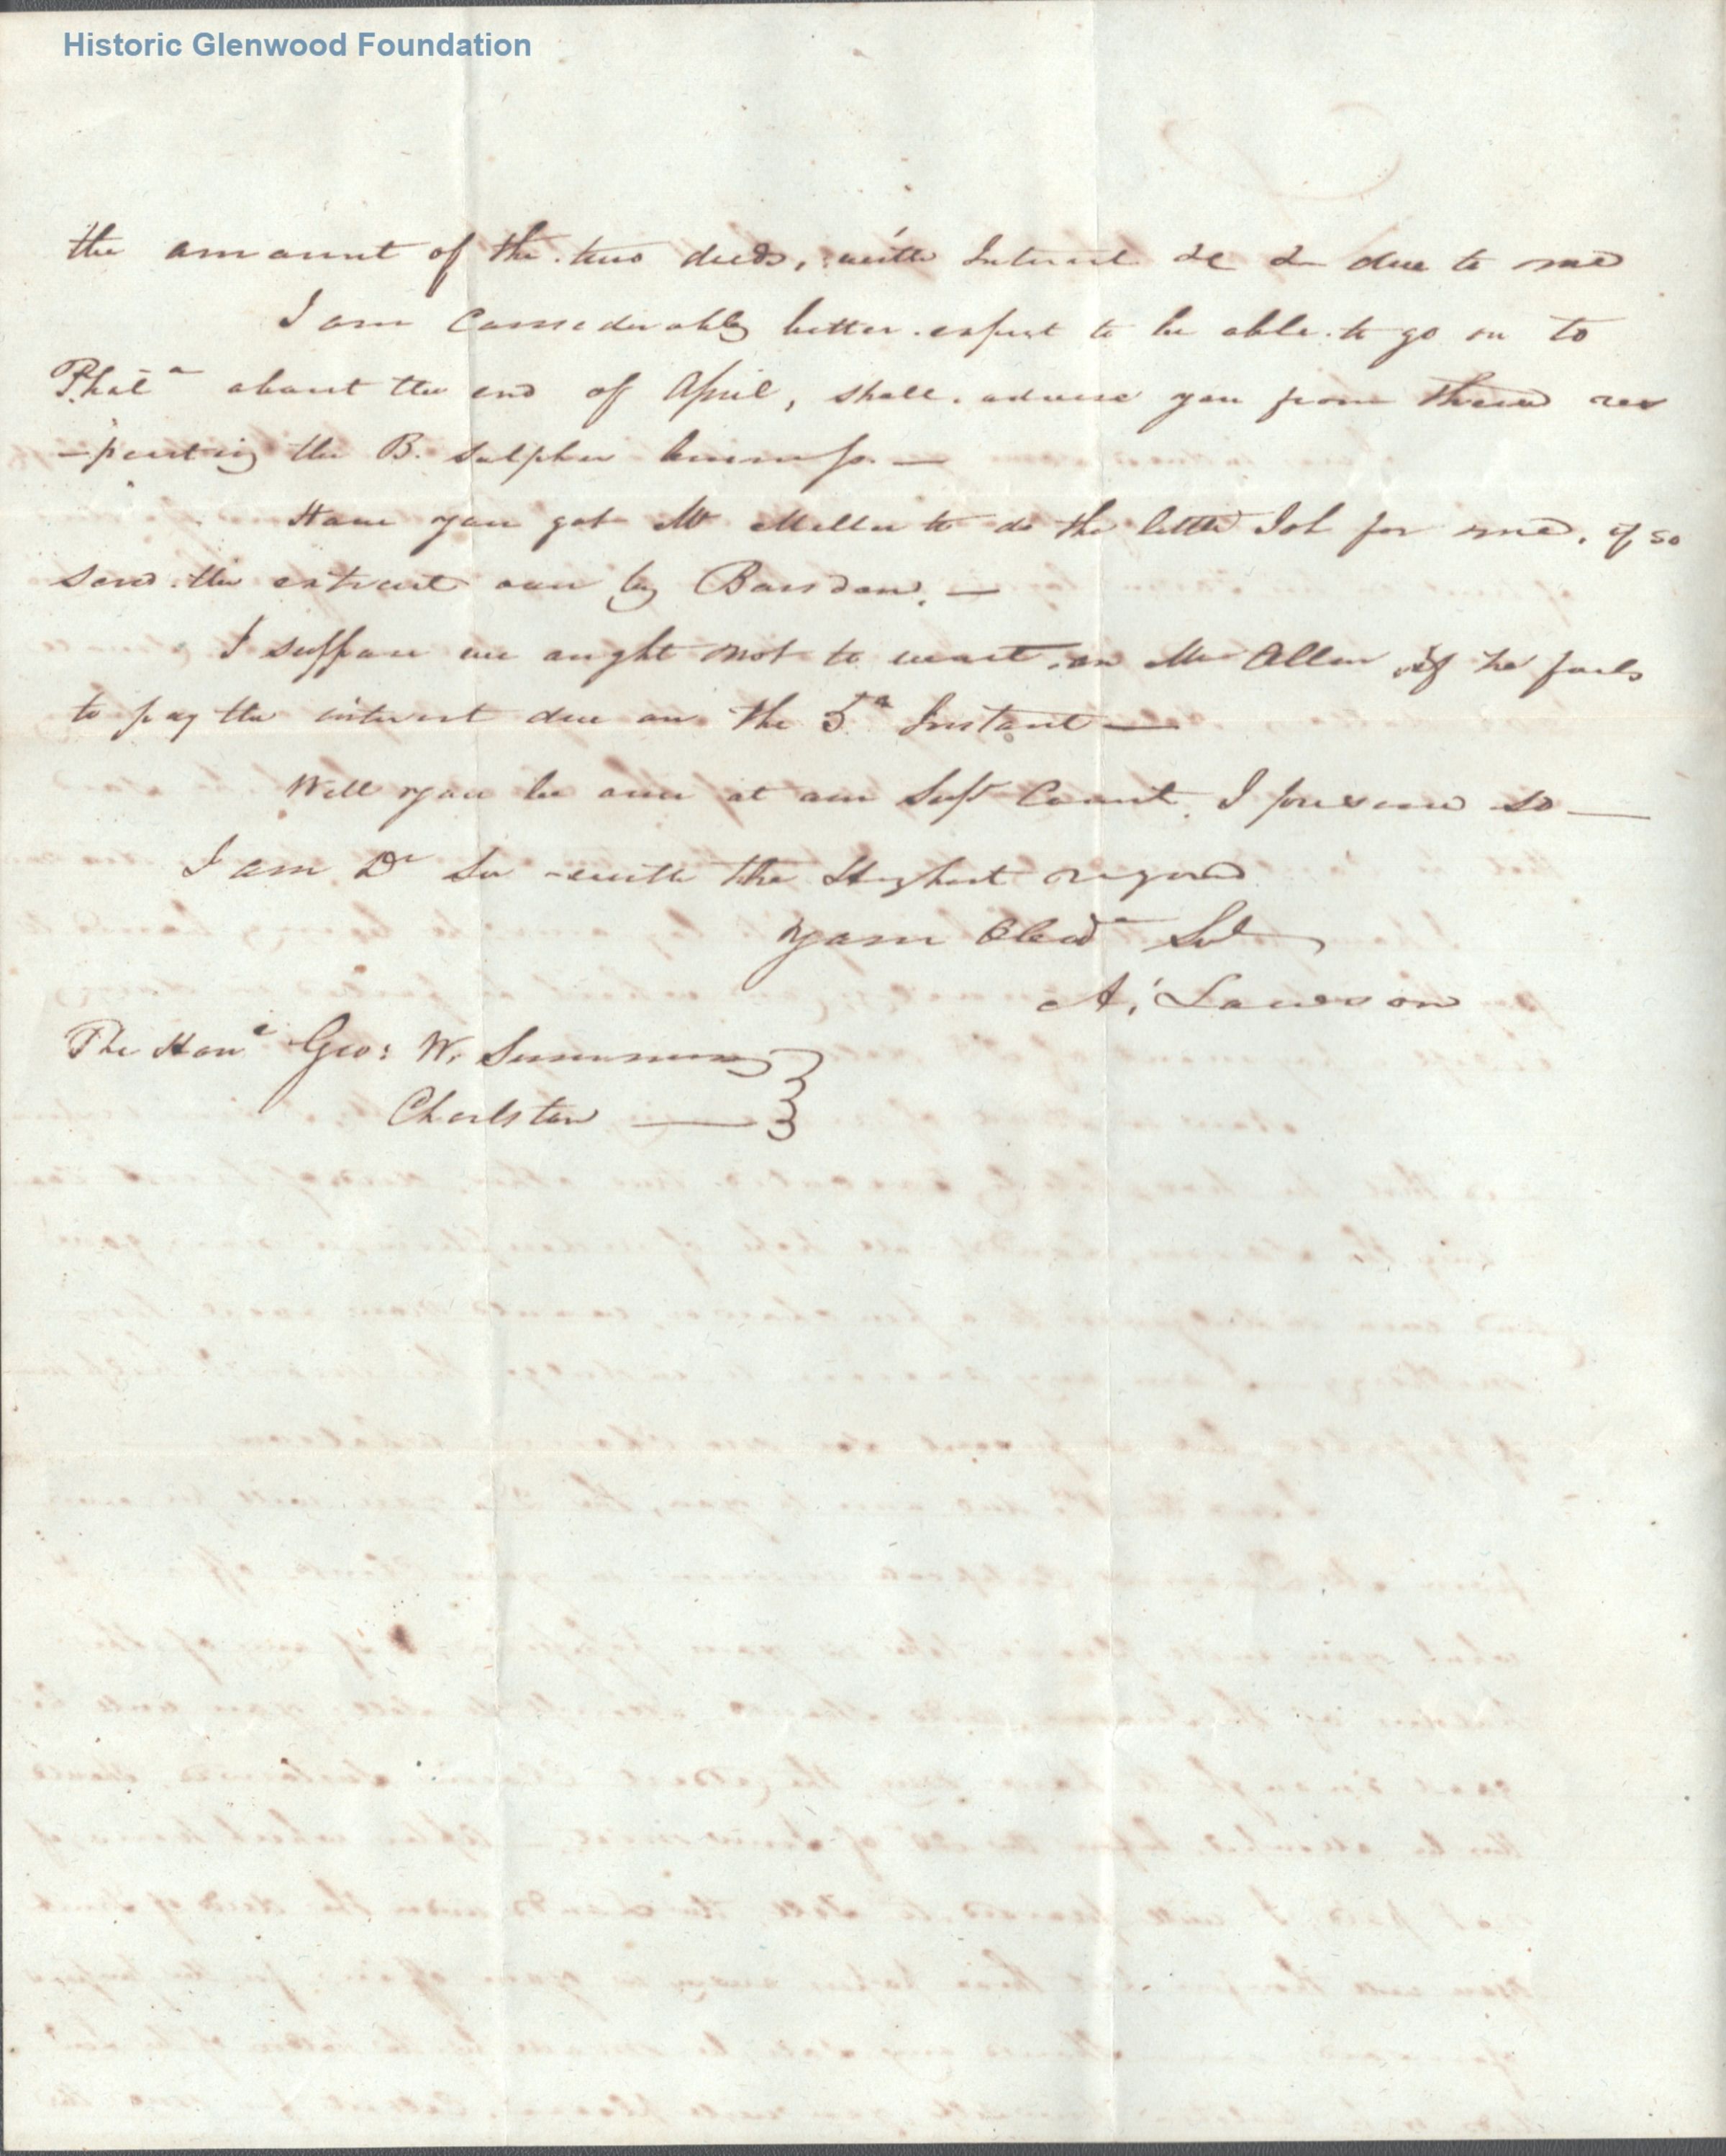 Historic Glenwood Foundation
the amount of the two deeds, with Interest &c &c due to me
I am Considerably better. expect to be able to go on to
Phila about the end of April, shall advise you from thence res
-pecting the B. Sulpher business. —
Have you got Mr Miller to do the little Job for me, if so
send the extract over by Bowden. —
I suppose we ought not to wait on Mr Allen if he fails
to pay the interest due on the 5th Instant —
Will you be over at our Supr Court, I presume so —
I am Dr Sir with the Highest regard
Your Obedt Svt
A, Lawson
The Honle Geo: W. Summers
Charlston —